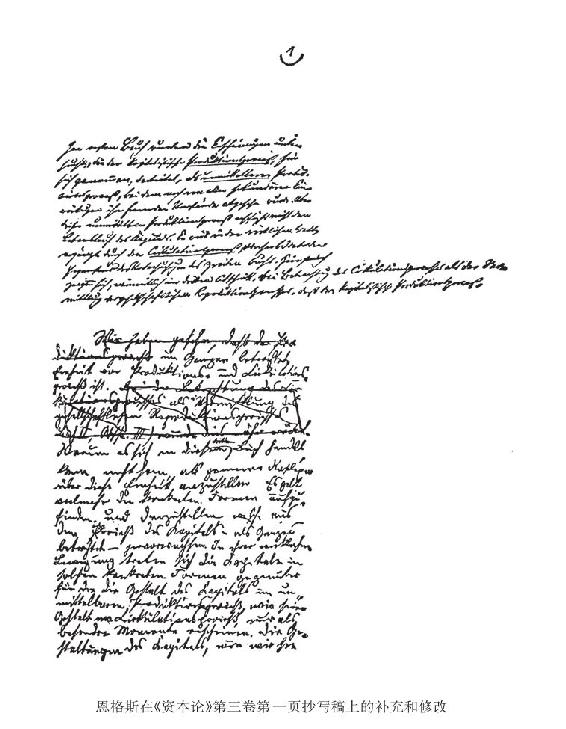 1
Im ersten Buch wurden die Erscheinungen unter-
sucht, die der kapitalistische Produktionsprozeß, für
sich genommen, darbietet, als unmittelbarer Produk-
tionsprozeß, bei dem noch von allen sekundären Ein-
wirkungen ihm fremder Umstände abgesehn wurde. Aber
dieser unmittelbare Produktionsprozeß erschöpft nicht den
Lebenslauf des Kapitals. Er wird in der wirklichen Welt
ergänzt durch den Cirkulationsprozeß
Gegenstand der Untersuchungen des zweiten Buchs. Hier
zeigte sich, namentlich im dritten Abschnitt, bei Betrachtung des Cirkulationsprozesses als der Ver-
mittlung des gesellschaftlichen Reproduktionsprozesses, daß der kapitalistische Produktionsprozeß
Wir haben gesehn, daß der Pro-
duktionsprozeß im Ganzen betrachtet
Einheit von Produktions- und Cirkulations-
prozeß ist. Bei der Betrachtung des Cir-
kulationsprozesses als Vermittlung des
gesellschaftlichen Reproduktionsprozesses
Worum es sich in diesem Buch handelt
kann nicht sein, allgemeine Reflexionen
über diese Einheit anzustellen. Es gilt
vielmehr die konkreten Formen aufzu-
finden und darzustellen, welche aus
dem Prozeß des Kapitals - als Ganzes
betrachtet - hervorwachsen. In ihrer wirklichen
Bewegung treten sich die Kapitale in
solchen konkreten Formen gegenüber
für die die Gestalt des Kapitals im un-
mittelbaren Produktionsprozeß, wie seine
Gestalt im Cirkulationsprozeß nur als
besondere Momente erscheinen. Die Ge-
staltungen des Kapitals, wie wir sie
恩格斯在《资本论》第三卷第一页抄写稿上的补充和修改